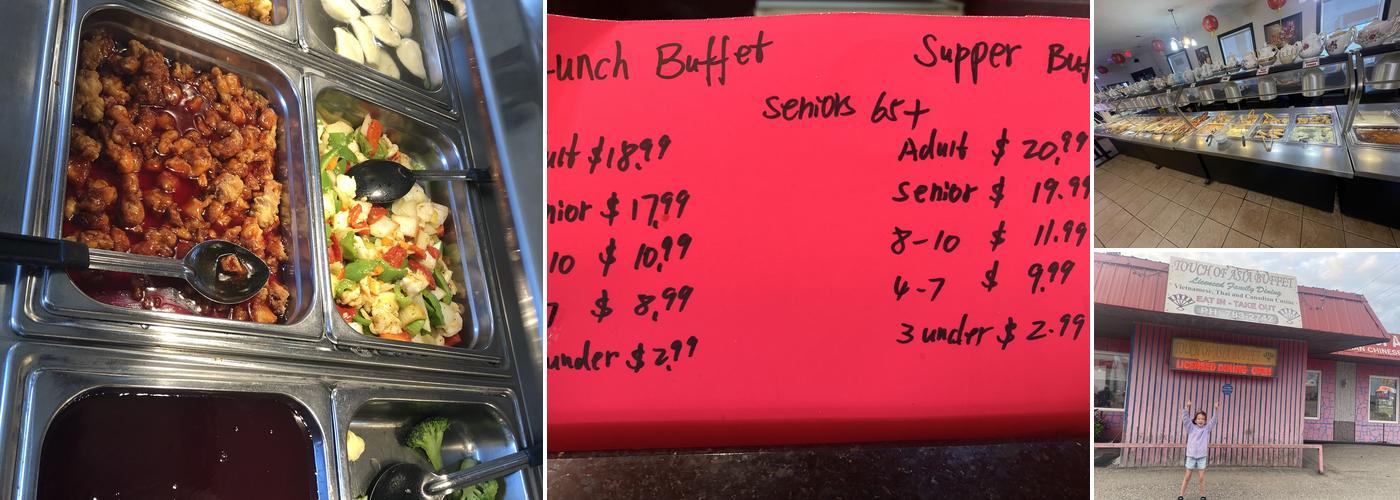 Lunch Buffet
Supper Buf
Seniors 65+
ult $18.99
nior $17.99
10 $10.99
7 $8.99
under $2.99
Adult $20.99
senior $19.99
8-10 $11.99
4-7 $9.99
3 under $2.99
TOUCH OF ASIA BUFFET
Licensed Family Dining
Vietnamese, Thai and Canadian Cuisine
EAT IN - TAKE OUT
PH: 783-2742
LICENSED DINING
AN CHINESE